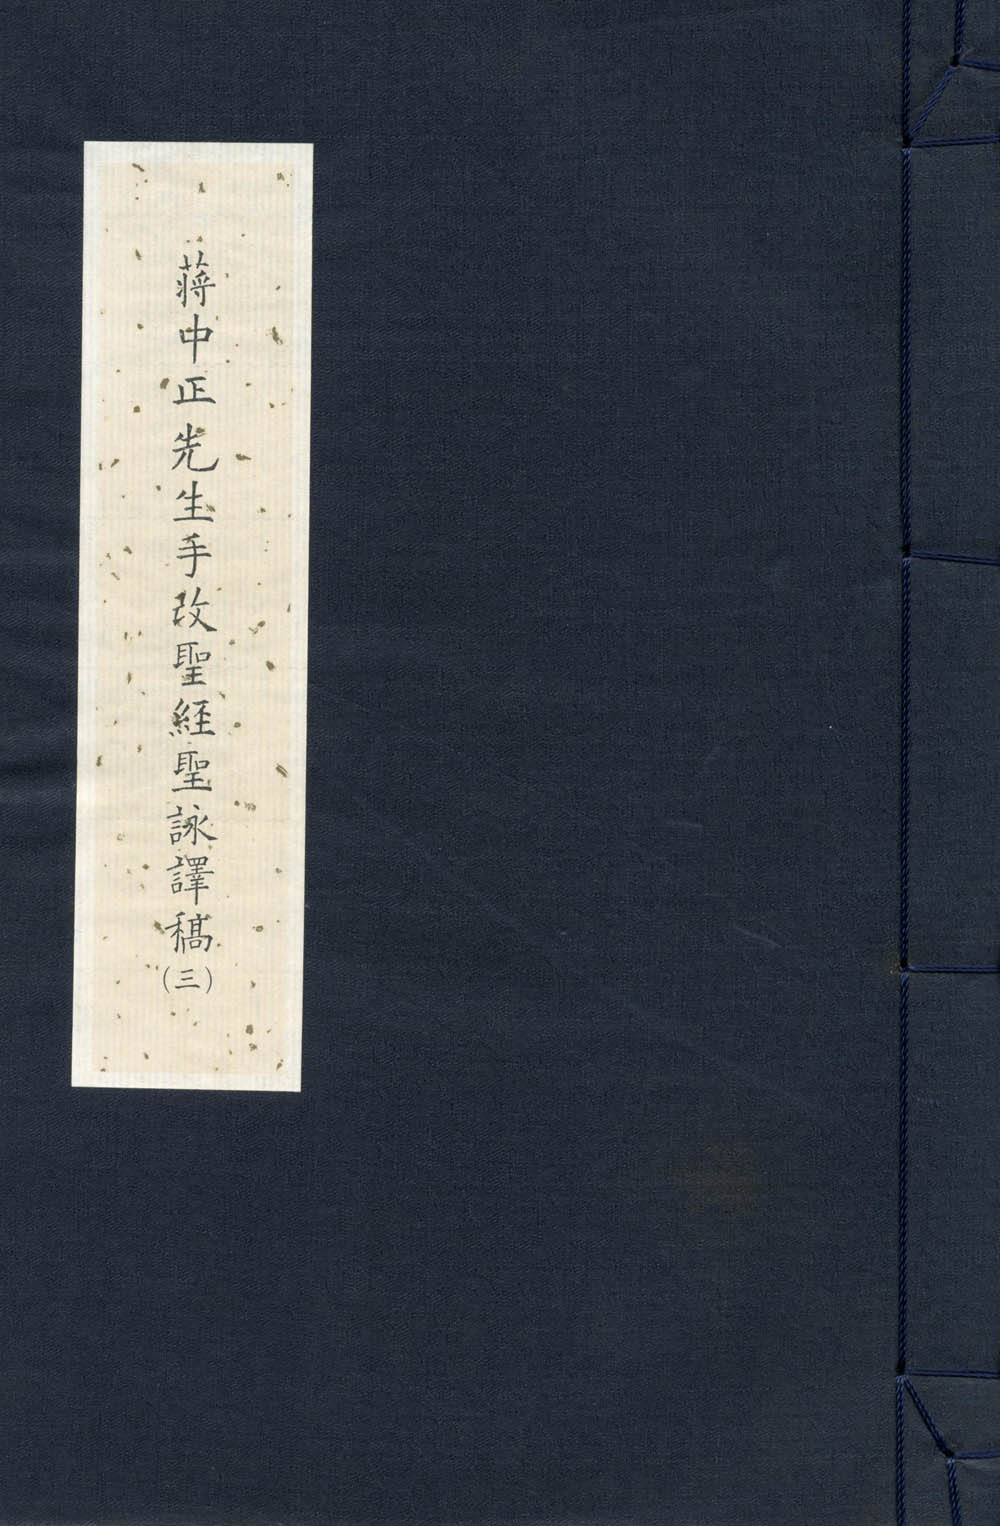 蔣中正先生手改聖經聖詠譯稿(三)